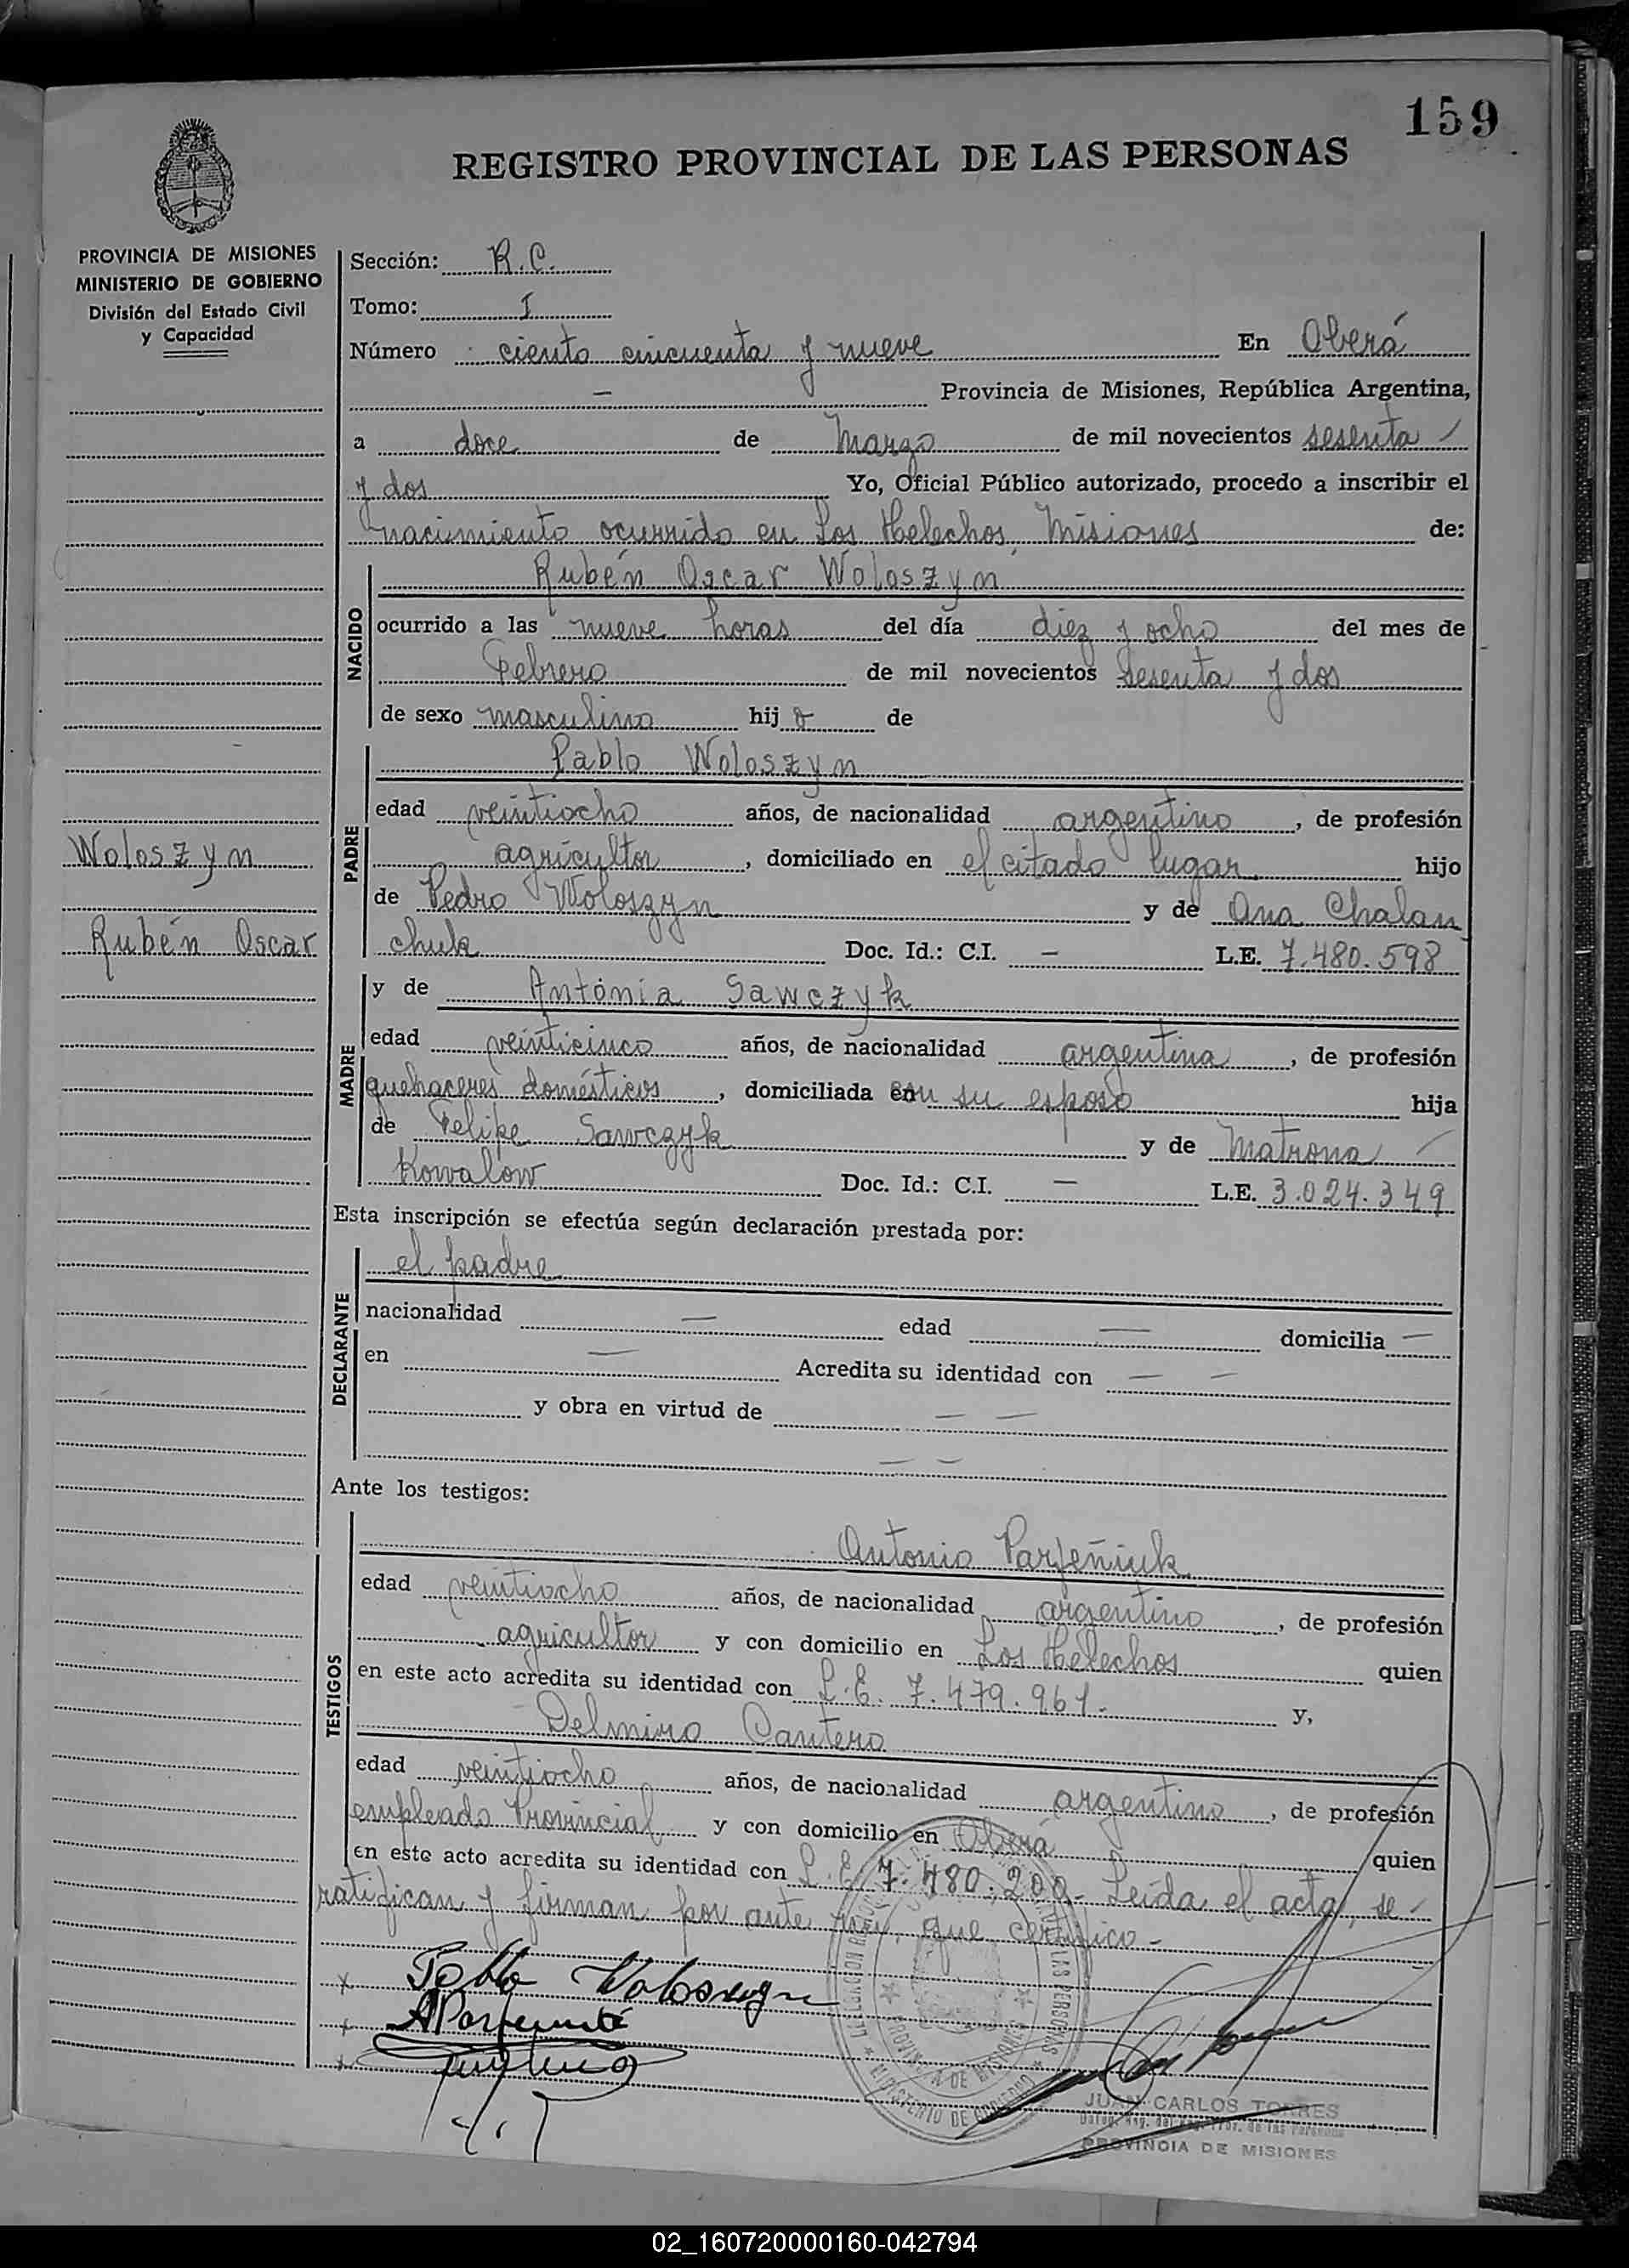 159
REGISTRO PROVINCIAL DE LAS PERSONAS
PROVINCIA DE MISIONES
MINISTERIO DE GOBIERNO
División del Estado Civil
y Capacidad
Sección: R.C.
Tomo: I
Número ciento cincuenta y nueve En Oberá
— Provincia de Misiones, República Argentina,
a doce de Marzo de mil novecientos sesenta
y dos Yo, Oficial Público autorizado, procedo a inscribir el
nacimiento ocurrido en Los Helechos, Misiones de:
NACIDO
Rubén Oscar Woloszyn
ocurrido a las nueve horas del día diez y ocho del mes de
Febrero de mil novecientos sesenta y dos
de sexo masculino hijo de
PADRE
Pablo Woloszyn
edad veintiocho años, de nacionalidad argentino, de profesión
agricultor, domiciliado en el citado lugar hijo
de Pedro Woloszyn y de Ana Chalan
chuk Doc. Id.: C.I. — L.E. 7.480.598
Woloszyn
Rubén Oscar
MADRE
y de Antonia Sawczyk
edad veinticinco años, de nacionalidad argentina, de profesión
quehaceres domésticos, domiciliada con su esposo hija
de Felipe Sawczyk y de Matrona
Kowalow Doc. Id.: C.I. — L.E. 3.024.349
Esta inscripción se efectúa según declaración prestada por:
DECLARANTE
el padre
nacionalidad — edad — domicilia —
en — Acredita su identidad con — —
y obra en virtud de — —
— —
Ante los testigos:
TESTIGOS
Antonio Parfeñiuk
edad veintiocho años, de nacionalidad argentino, de profesión
agricultor y con domicilio en Los Helechos quien
en este acto acredita su identidad con L.E. 7.479.961.- y,
Delmiro Cantero
edad veintiocho años, de nacionalidad argentino, de profesión
empleado Provincial y con domicilio en Oberá quien
en este acto acredita su identidad con L.E. 7.480.200.- Leída el acta, se
ratifican y firman por ante mí, que certifico.-
x Pablo Woloszyn
x A Parfeniuk
x
MINISTERIO DE GOBIERNO
PROVINCIA DE MISIONES
JUAN CARLOS TORRES
PROVINCIA DE MISIONES
02_160720000160-042794